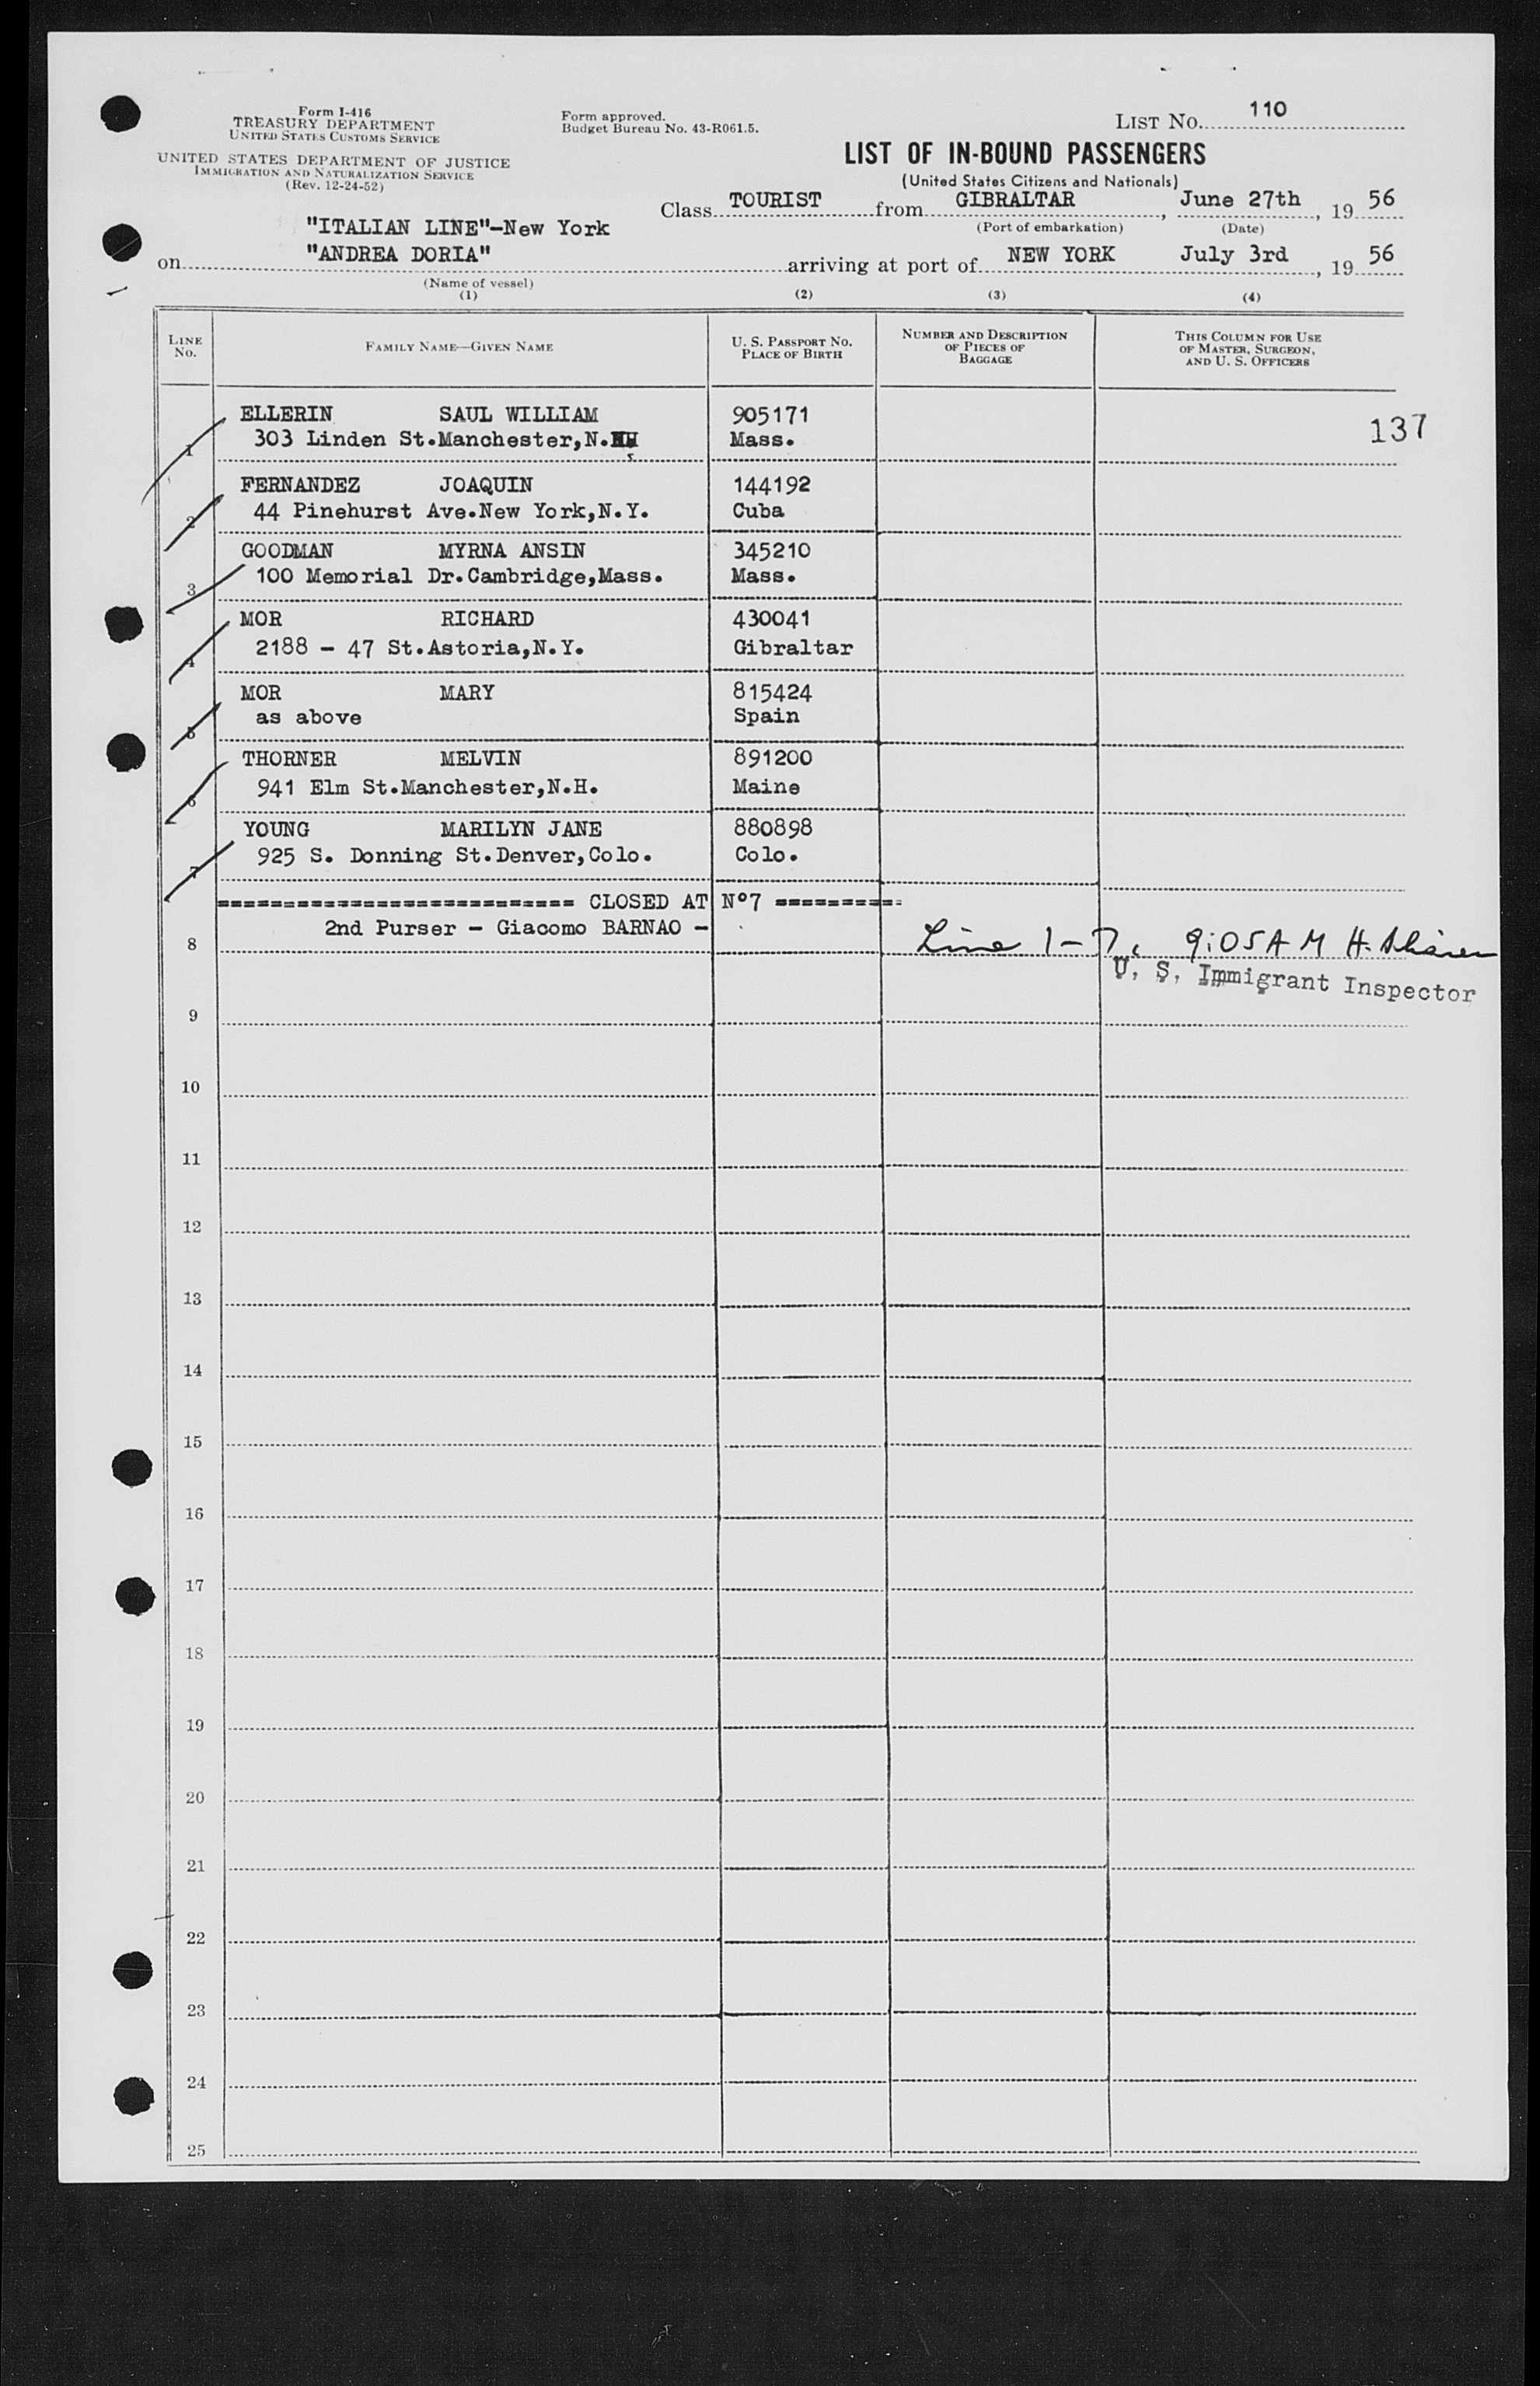 Form I-416
TREASURY DEPARTMENT
UNITED STATES CUSTOMS SERVICE
UNITED STATES DEPARTMENT OF JUSTICE
IMMIGRATION AND NATURALIZATION SERVICE
(Rev. 12-24-52)
Form approved.
Budget Bureau No. 43-R061.5.
LIST No. 110
LIST OF IN-BOUND PASSENGERS
(United States Citizens and Nationals)
Class TOURIST from GIBRALTAR, June 27th, 19 56
(Port of embarkation) (Date)
"ITALIAN LINE"-New York
on "ANDREA DORIA" arriving at port of NEW YORK July 3rd, 19 56
(Name of vessel)
(1) (2) (3) (4)
LINE No. FAMILY NAME—GIVEN NAME U. S. PASSPORT No. PLACE OF BIRTH NUMBER AND DESCRIPTION OF PIECES OF BAGGAGE THIS COLUMN FOR USE OF MASTER, SURGEON, AND U. S. OFFICERS
1 ELLERIN SAUL WILLIAM 905171
303 Linden St.Manchester,N.H. Mass. 137
2 FERNANDEZ JOAQUIN 144192
44 Pinehurst Ave.New York,N.Y. Cuba
3 GOODMAN MYRNA ANSIN 345210
100 Memorial Dr.Cambridge,Mass. Mass.
4 MOR RICHARD 430041
2188 - 47 St.Astoria,N.Y. Gibraltar
5 MOR MARY 815424
as above Spain
6 THORNER MELVIN 891200
941 Elm St.Manchester,N.H. Maine
7 YOUNG MARILYN JANE 880898
925 S. Donning St.Denver,Colo. Colo.
=========================== CLOSED AT N°7 ==========
2nd Purser - Giacomo BARNAO -
8 Line 1-7, 9:05 A M H.
U. S. Immigrant Inspector
9
10
11
12
13
14
15
16
17
18
19
20
21
22
23
24
25